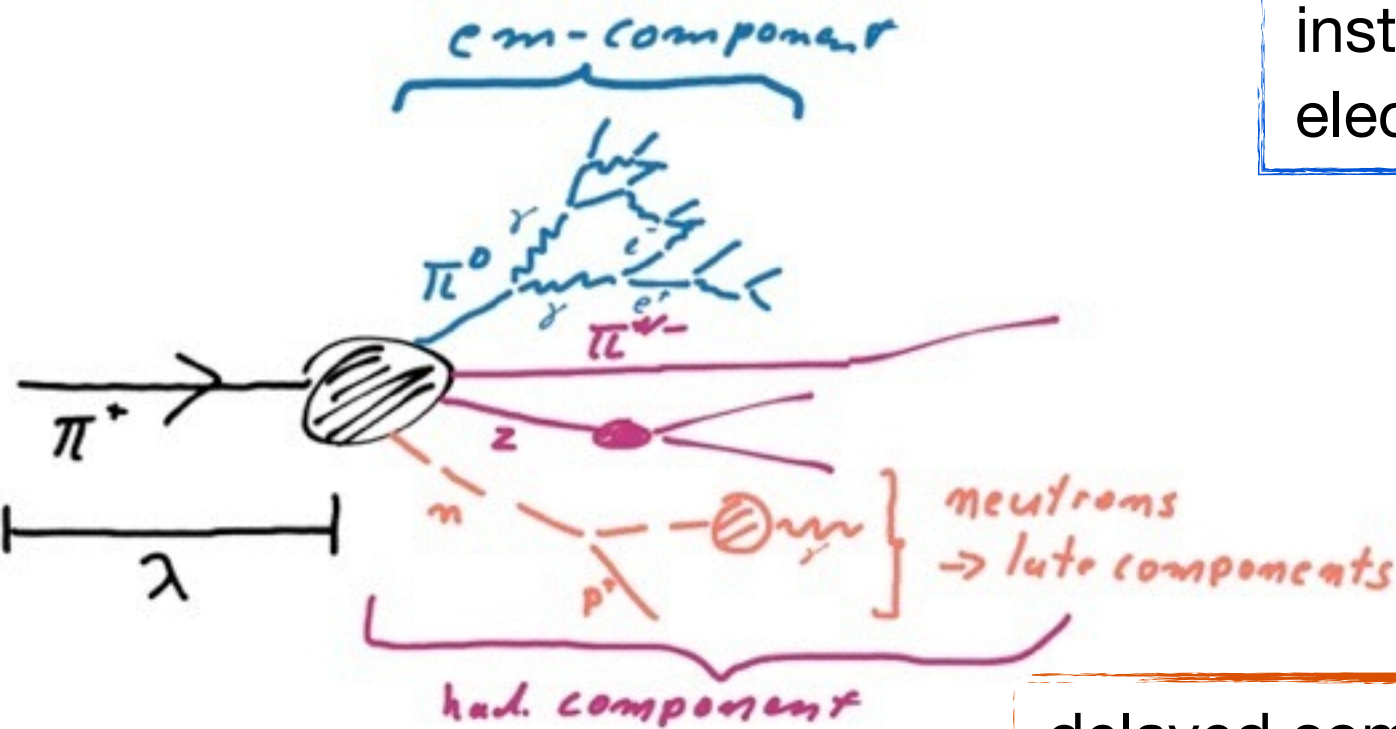 em-component
inst
elec
γ
π⁰
e⁻
γ
e⁺
π⁺/⁻
π⁺
z
n
neutrons
γ
→ late components
λ
p⁺
had. component
delayed com